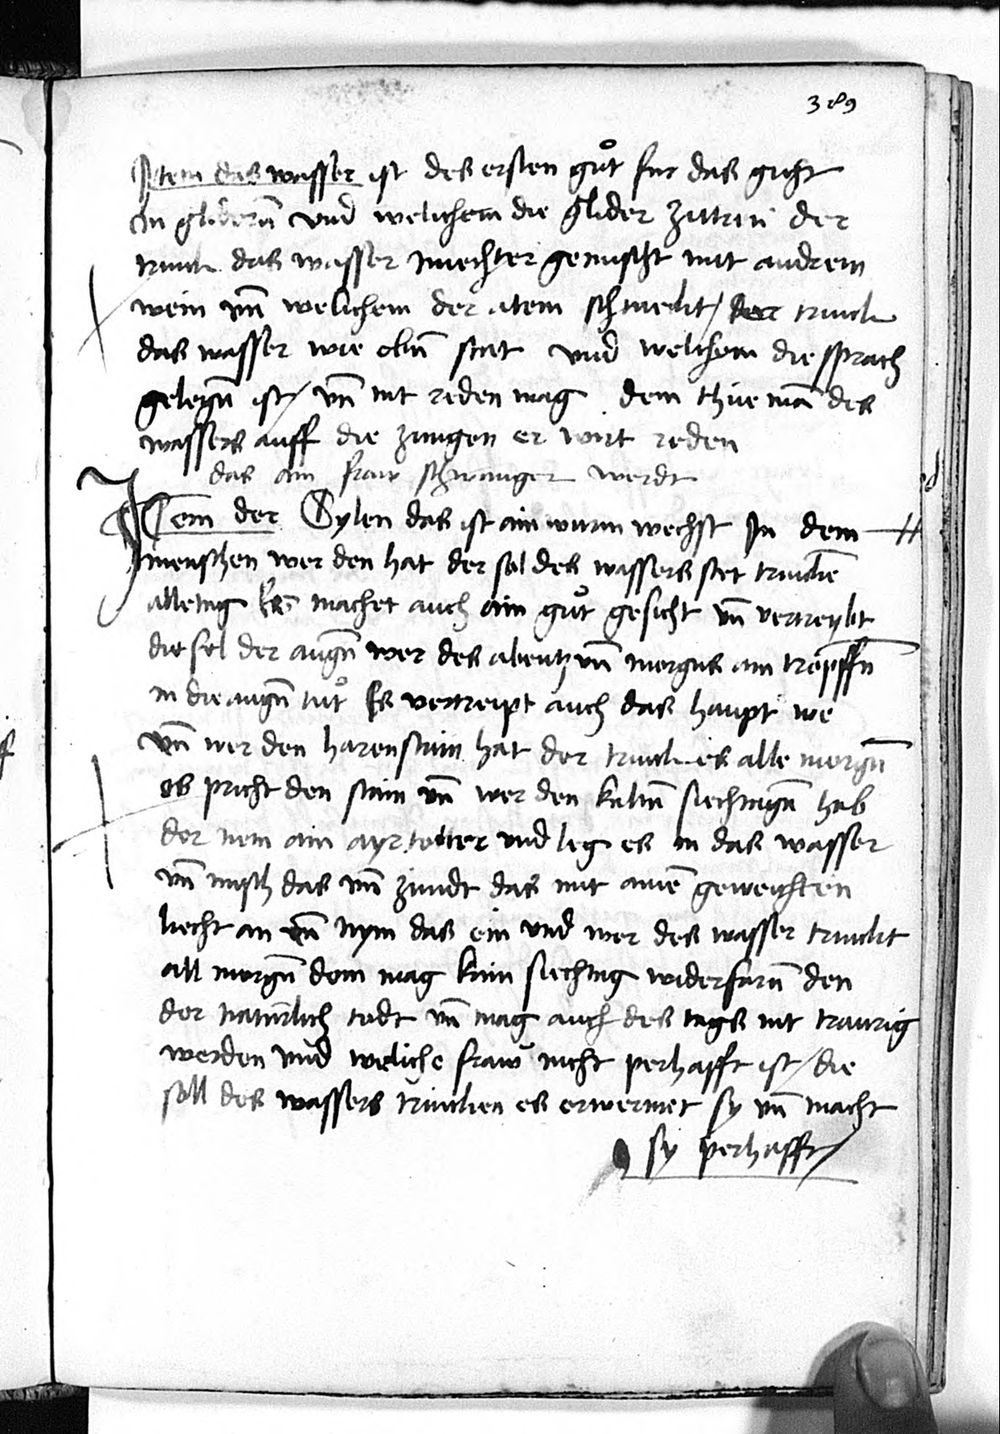 389
Item das wasser ist des ersten gůt fur das gicht
In glidern̄ vnd welichem die glider zittrn̄ der
trinck das wasser nuechter gemischt mit andrem
wein vn̄ welichem der atem schmeckt / der trinck
das wasser wie obn̄ stat vnd welichem die sprach
gelegn̄ ist / vn̄ nit reden mag dem thue mā des
wassers auff die zungen er wirt reden
das ain fraw schwanger werdt
Item der Sylen das ist ain wurm wechst In dem
menschen wer den hat der sol des wassers stet trinckē
alletag Es machet auch ain gůt gesicht vn̄ vertreybt
die fel der augn̄ wer des abentz vn̄ morgns ain tropffn̄
in die augn̄ tůt Es vertreipt auch das haupt we
vn̄ wer den harenstain hat der trinck es alle morgn̄
es pricht den stain vn̄ wer den kaltn̄ siechtagn̄ hab
der nem ain ayr totter vnd leg es in das wasser
vn̄ misch das vn̄ zundt das mit ainē geweichten
liecht an vn̄ nym das ein vnd wer des wasser trinckt
all morgn̄ dem mag kain siechtag widerfarn̄ den
der naturlich todt vn̄ mag auch des tags nit traurig
werden vnd weliche fraw nicht perhafft ist / die
soll des wassers trincken es erwermet sy vn̄ macht
sy perhafft /